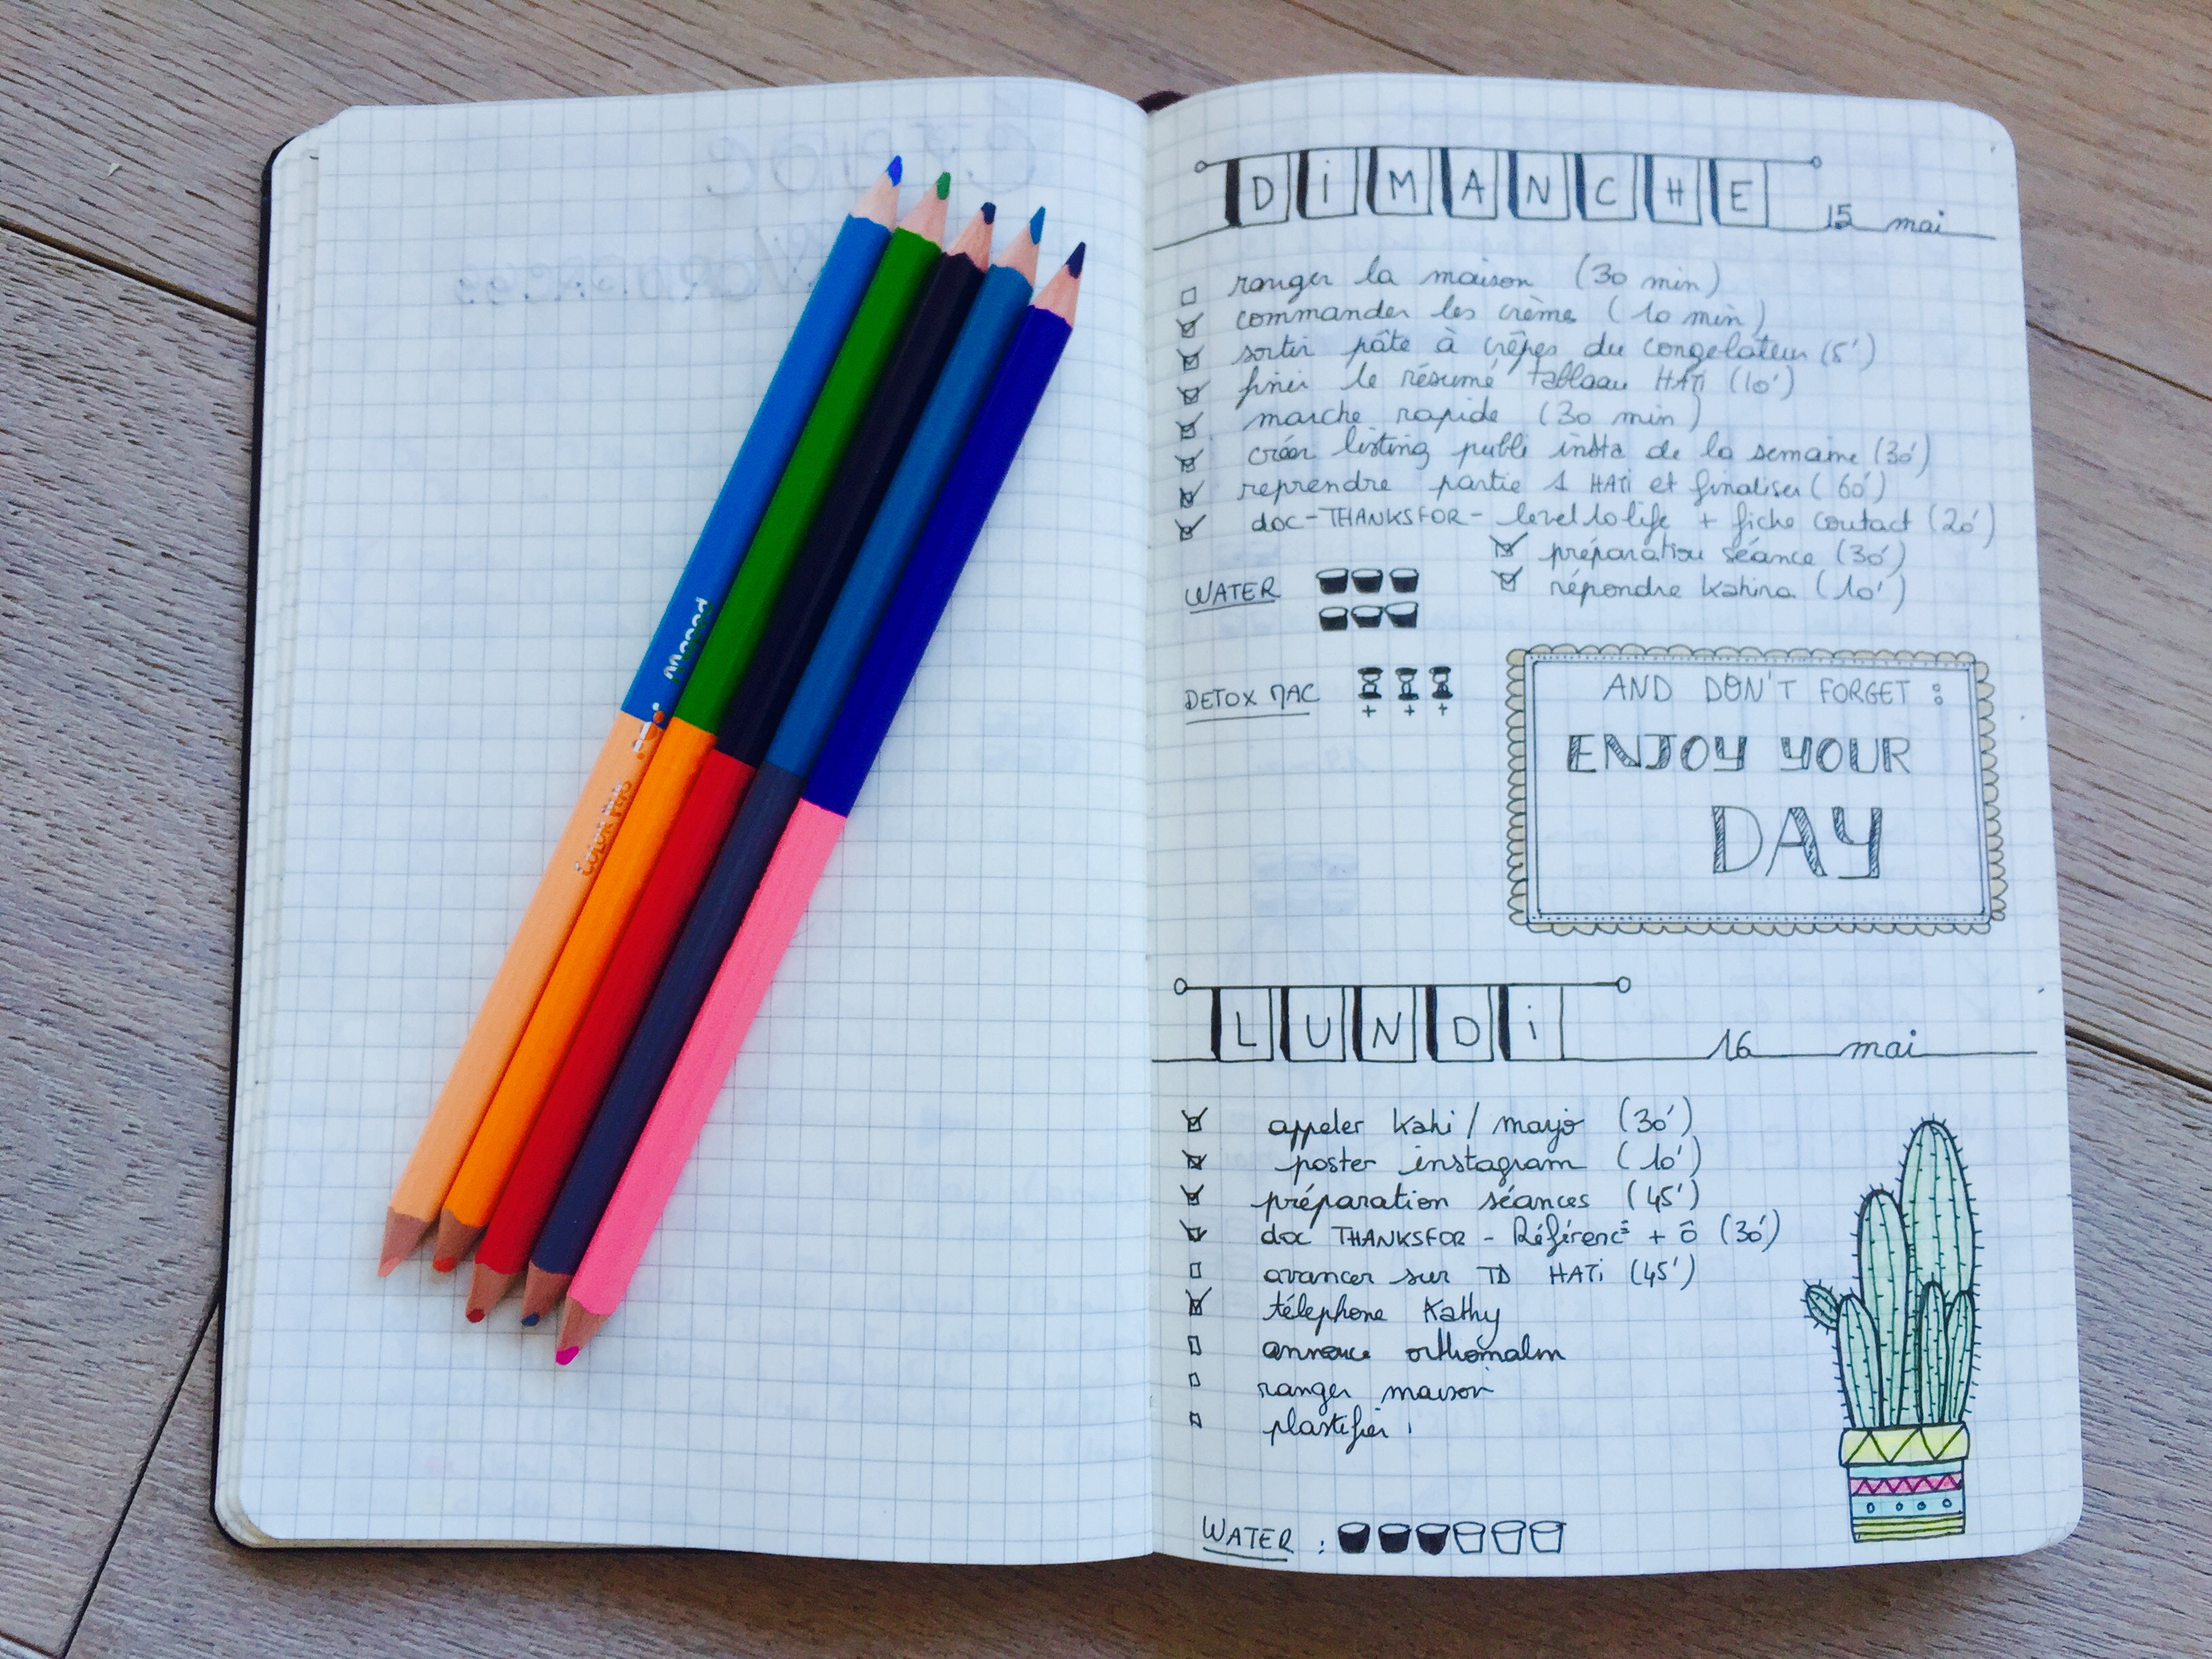 Maped
COLOR'PEPS
DIMANCHE 15 mai
ranger la maison (30 min)
commander les crème (10 min)
sortir pâte à crêpes du congelateur (5')
finir le résumé tableau HATI (10')
marche rapide (30 min)
créer listing publi insta de la semaine (30')
reprendre partie 1 HATI et finaliser (60')
doc - THANKSFOR - level to life + fiche contact (20')
préparation séance (30')
répondre Kahina (10')
WATER
DETOX MAC
+ + +
AND DON'T FORGET :
ENJOY YOUR
DAY
LUNDI 16 mai
appeler Kahi / mayo (30')
poster instagram (10')
préparation séances (45')
doc THANKSFOR - + ô (30')
avancer sur TD HATI (45')
téléphone Kathy
annonce
ranger maison
plastifier
WATER :